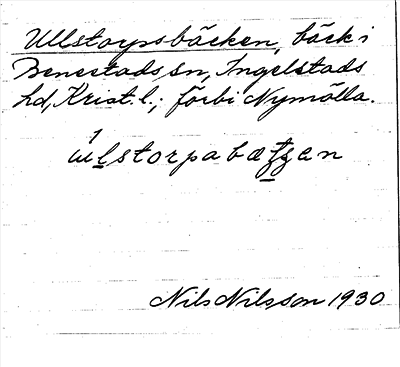 Ullstorps-bäcken, bäck i
Benestads sn, Ingelstads
hd, Krist. l.; förbi Nymölla.
Nils Nilsson 1930